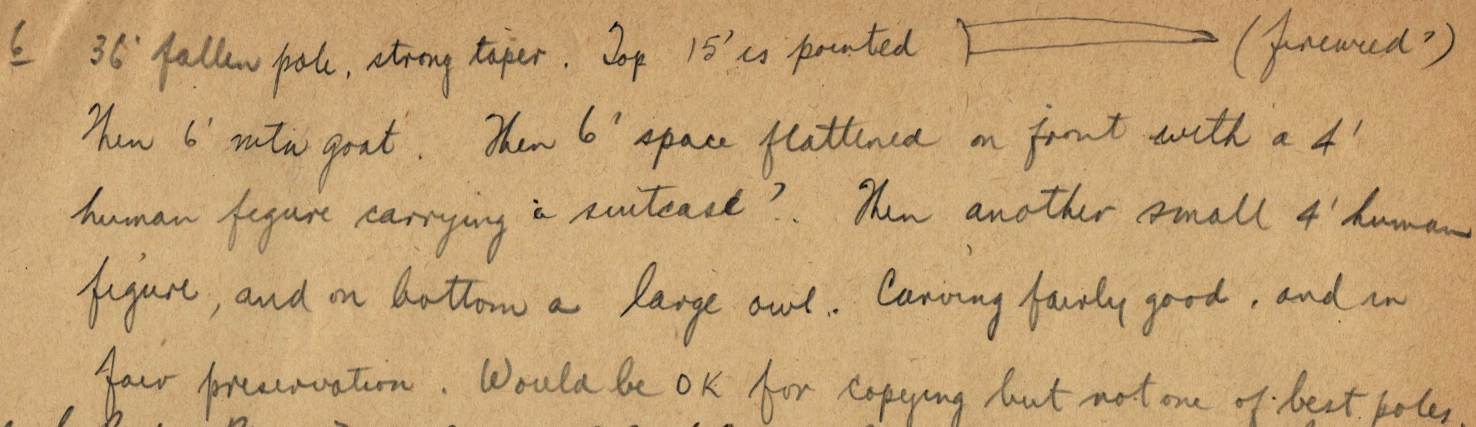 6 36' fallen pole, strong taper. Top 15' is pointed (fireweed?)
Then 6' mtn goat. Then 6' space flattened on front with a 4'
human figure carrying a suitcase?. Then another small 4' human
figure, and on bottom a large owl. Carving fairly good, and in
fair preservation. Would be OK for copying but not one of best poles.